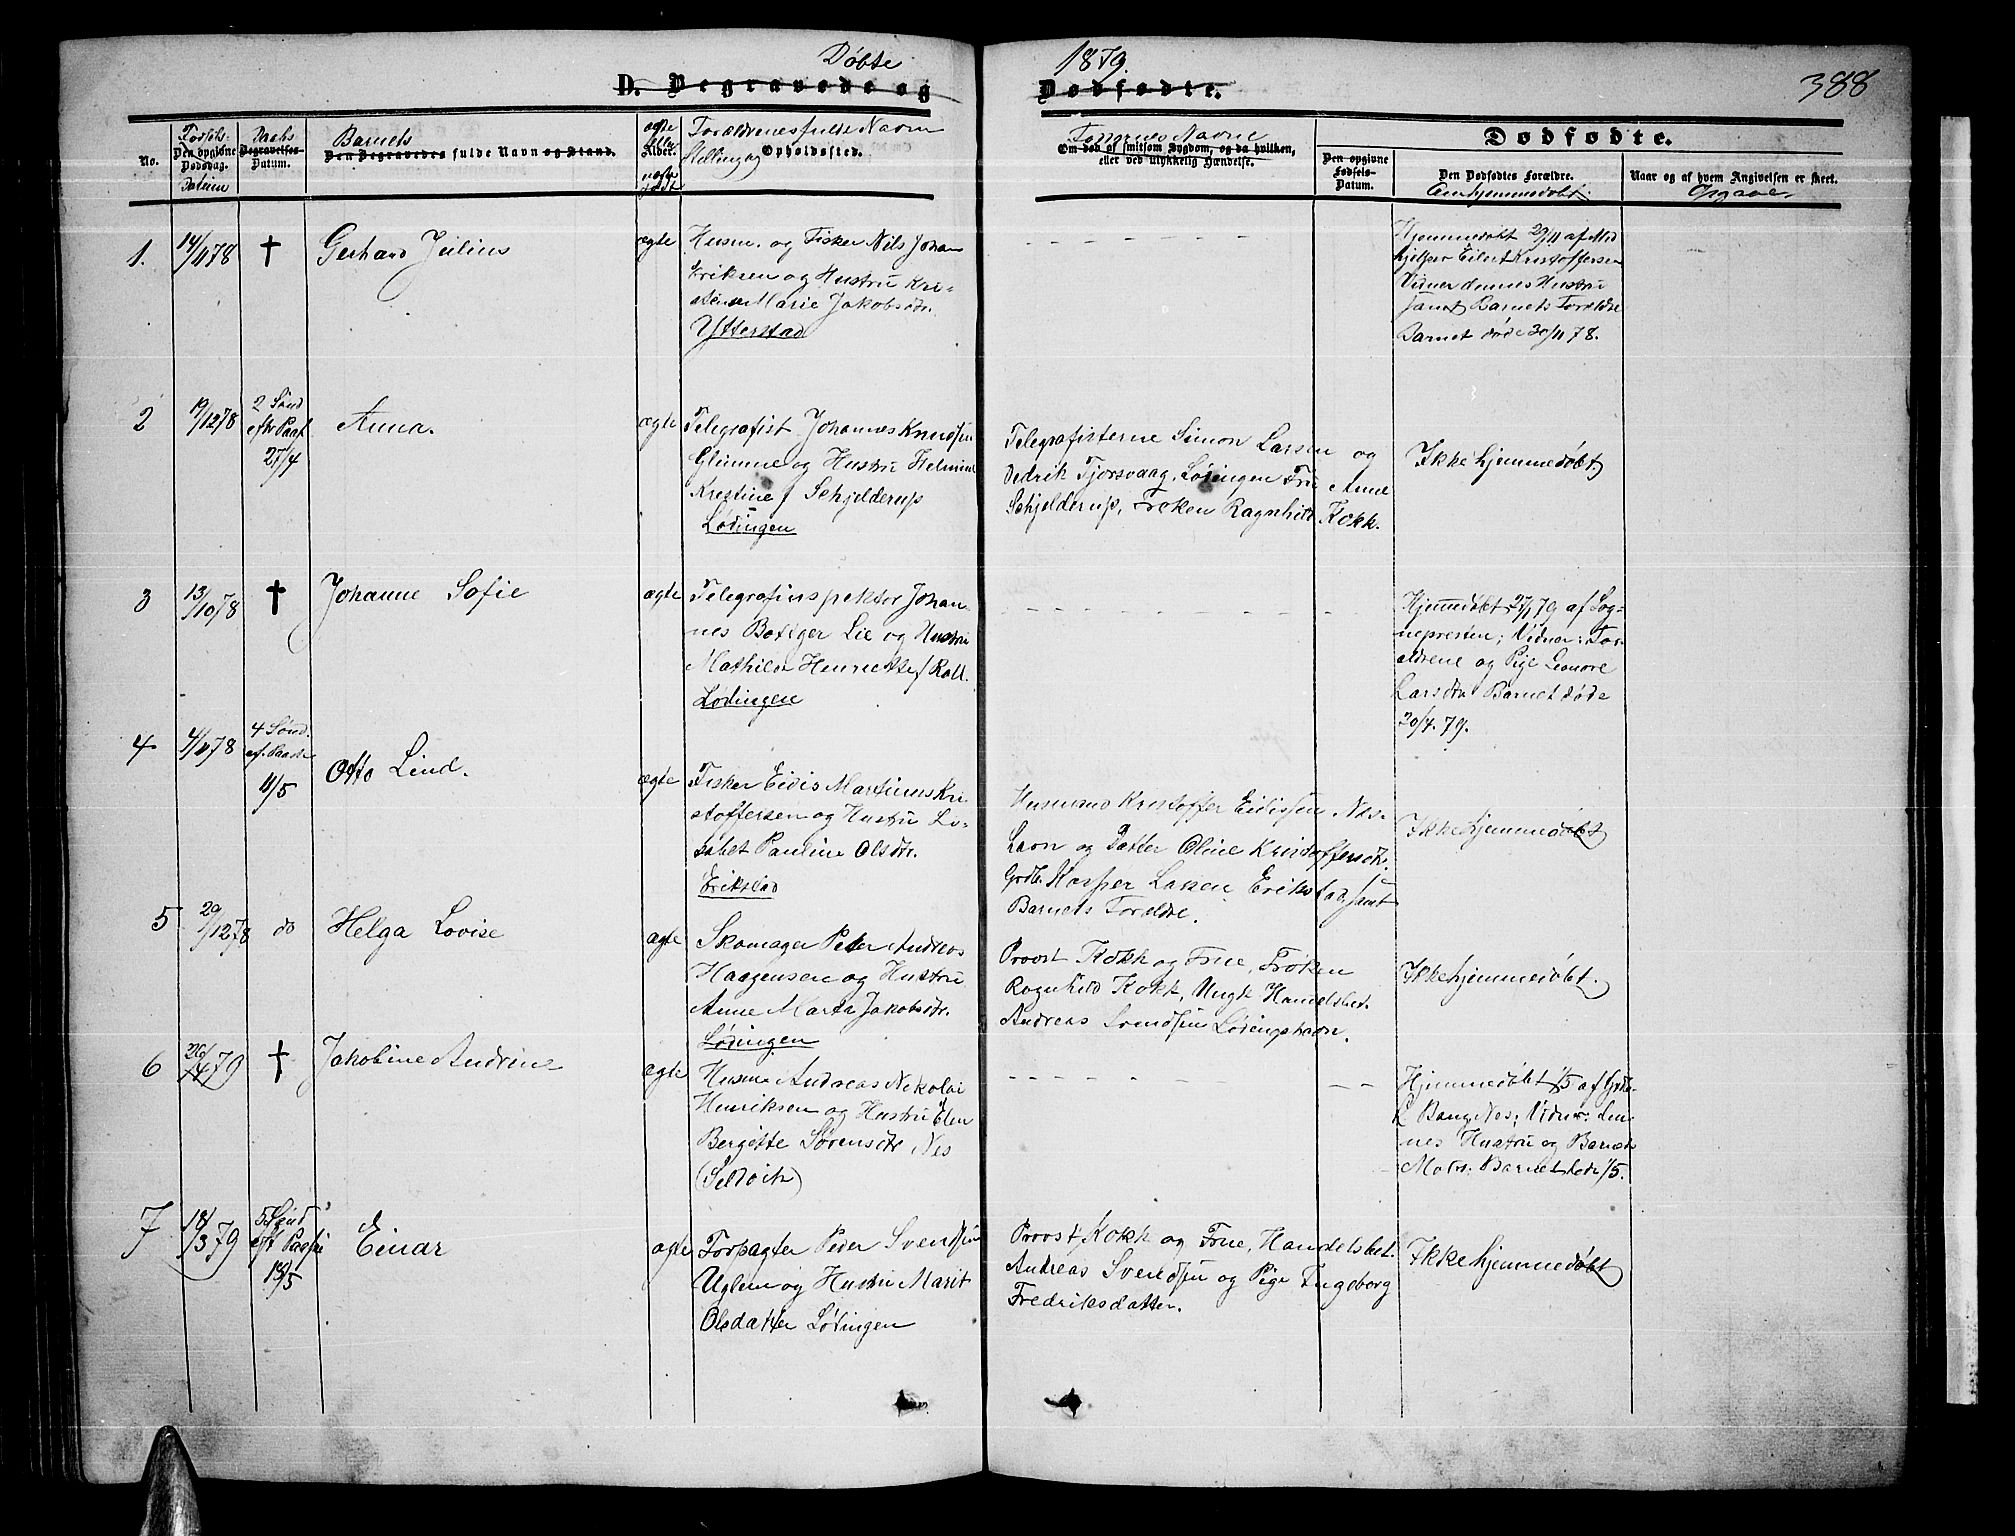 Døbte
1879.
388
D. Begravede og
Dødfødte.
No.
Fødsels-
Den opgivne
Dødsdag.
Datum
Daabs
Begravelses-
Datum.
Barnets
Den Begravedes fulde Navn og Stand.
ægte
eller
Alder.
uægte
født
Forældrenes fulde Navn
Stilling og Opholdssted.
Faddernes Navne
Om død af smitsom Sygdom, og da hvilken,
eller ved ulykkelig Hændelse.
Dødfødte.
Den opgivne
Fødsels-
Datum.
Den Dødfødtes Forældre.
Om hjemmedøbt
Naar og af hvem Angivelsen er skeet.
Opgave
1.
14/11 78
†
Gerhard Julius
ægte
Husm. og Fisker Nils Johan
Eriksen og Hustru Kri-
stense Marie Jakobsdr.
Ytterstad
Hjemmedøbt 29/11 af Med
hjelper Eilert Kristoffersen
Vidner dennes Hustru
samt Barnets Forældre
Barnet døde 30/11 78.
2
19/12 78
2 Sønd
eftr Paas
27/4
Anna.
ægte
Telegrafist Johannes Knudsen
Glimme og Hustru Helmine
Kristine f Schjelderup
Lødingen
Telegrafisterne Simon Larsen og
Didrik Tjorsvaag, Lødingen Fru Anne
Schjelderup, Frøken Ragnhild Kokk.
Ikke hjemmedøbt
3
13/10 78
†
Johanne Sofie
ægte
Telegrafinspektør Johan-
nes Bøtiger Lie og Hustru
Mathilde Henriette f Roll.
Lødingen
Hjemmedøbt 27/1 79 af Sog-
nepresten; Vidner: For-
ældrene og Pige Leonore
Larsdtr Barnet døde
20/4. 79.
4
4/11 78
4 Sønd.
ef. Paaske
11/5
Otto Lind.
ægte
Fisker Eidis Martinus Kri-
stoffersen og Hustru Li-
sabet Pauline Olsdr.
Erikstad
Husmand Kristoffer Eidissen Nes-
havn og Datter Oline Kristoffersdr.
Grdb. Kasper Lassen Erikstad samt
Barnets Forældre.
Ikke hjemmedøbt
5
29/12 78
do
Helga Lovise
ægte
Skomager Peter Andreas
Haagensen og Hustru
Anne Marta Jakobsdr.
Lødingen
Provst Kokk og Frue, Frøken
Ragnhild Kokk, Ungk. Handelsbet.
Andreas Svendsen Lødingshavn.
Ikke hjemmedøbt.
6
26/4 79
†
Jakobine Andrine
ægte
Husm. Andreas Nikolai
Henriksen og Hustru Elen
Bergitte Sørensdr Nes
Hjemmedøbt 1/5 af Grdb.
Bang Nes; Vidner: Den-
nes Hustru og Barnets
Moder. Barnet døde 1/5.
7
18/3 79
5 Sønd
eft Paaske
18/5
Einar
ægte
Forpagter Peder Svendsen
Uglem og Hustru Marit
Olsdatter Lødingen
Provst Kokk og Frue, Handelsbet.
Andreas Svendsen og Pige Ingeborg
Fredriksdatter.
Ikke hjemmedøbt